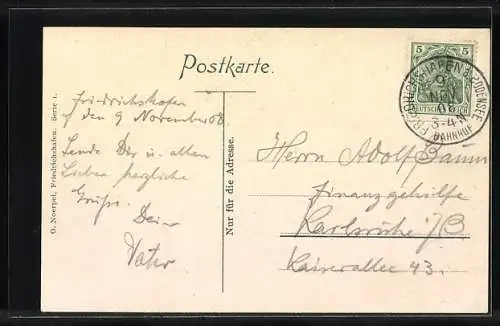 Postkarte.
Friedrichshafen
d den 9 November 08.
Sende Dir u. allen
Lieben herzliche
Grüße. Dein
Vater
G. Noerpel, Friedrichshafen. Serie 1.
Nur für die Adresse.
5 5
DEUTSCHES REICH
FRIEDRICHSHAFEN a. BODENSEE
9
NOV
08
3-4 N
BAHNHOF
Herrn Adolf Baum
Finanzgehilfe
Karlsruhe i/B
Kaiserallee 43.